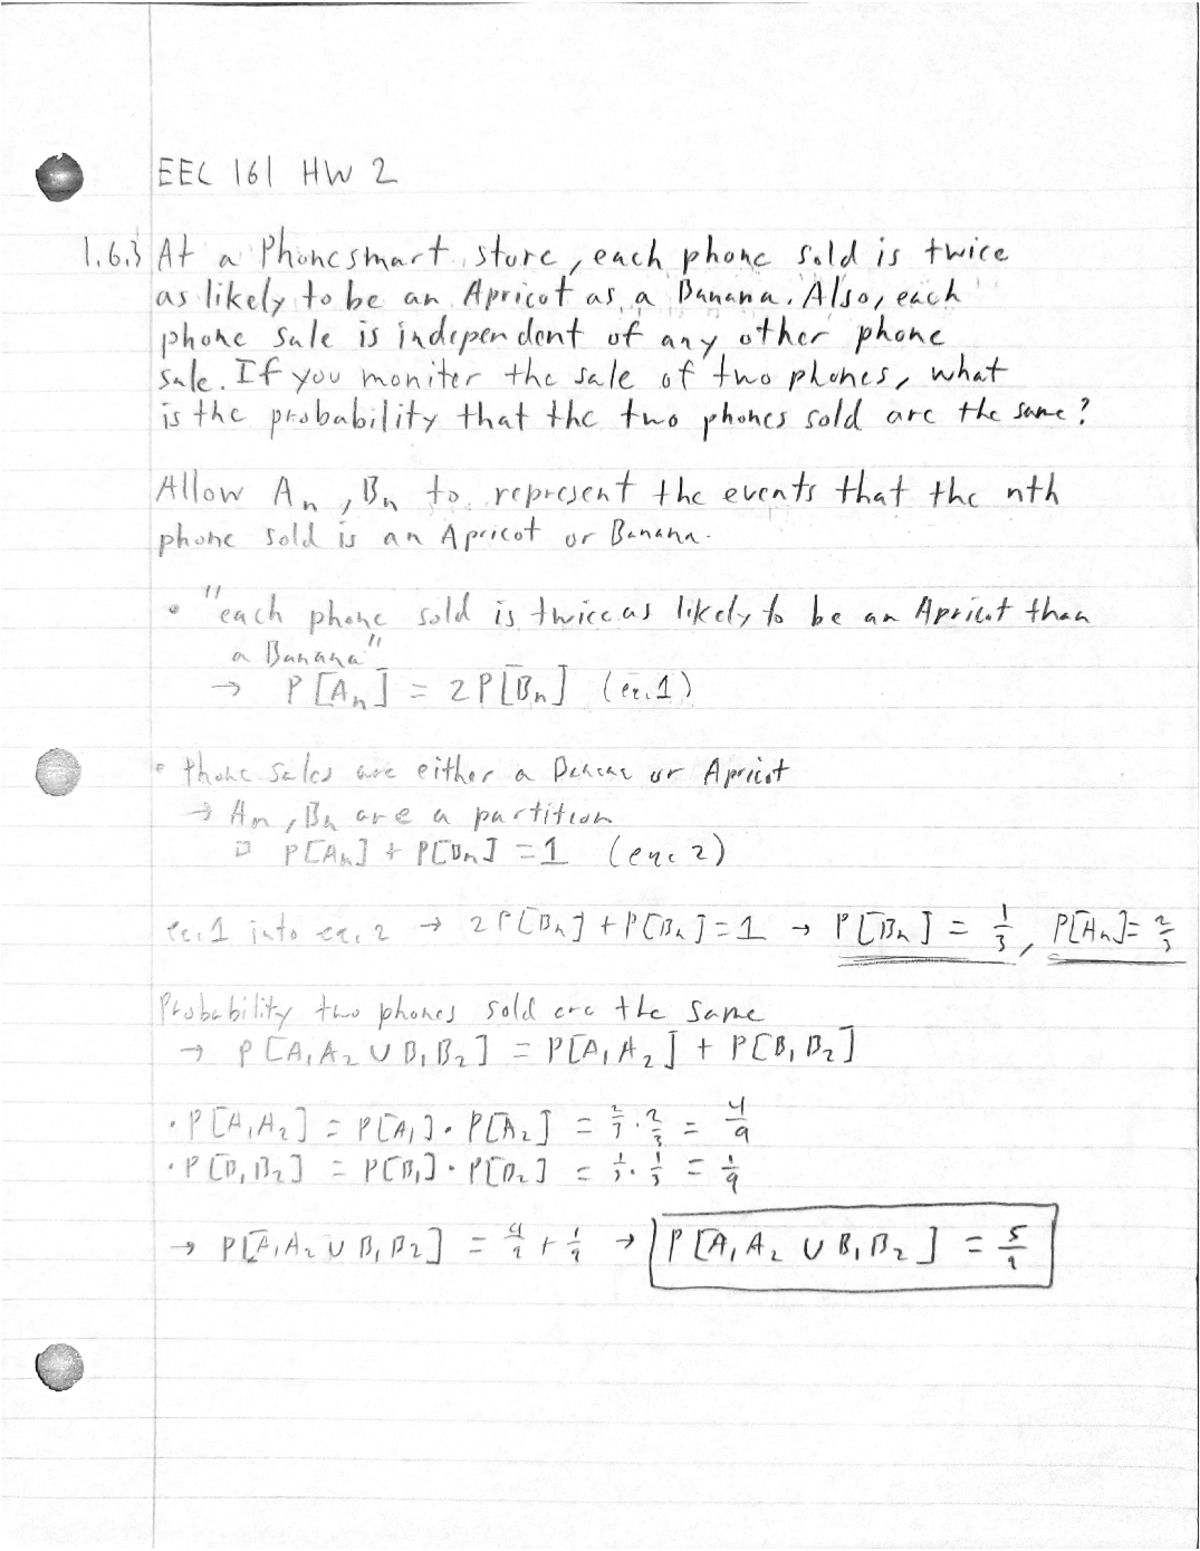 EEC 161 HW 2
1.6.3 At a Phonesmart store, each phone sold is twice
as likely to be an Apricot as a Banana. Also, each
phone sale is independent of any other phone
sale. If you moniter the sale of two phones, what
is the probability that the two phones sold are the same?
Allow Aₙ, Bₙ to represent the events that the nth
phone sold is an Apricot or Banana.
• "each phone sold is twice as likely to be an Apricot than
a Banana"
→ P[Aₙ] = 2P[Bₙ] (eq. 1)
• Phone sales are either a Banana or Apricot
→ Aₙ, Bₙ are a partition
□ P[Aₙ] + P[Bₙ] = 1 (eq. 2)
eq. 1 into eq. 2 → 2P[Bₙ] + P[Bₙ] = 1 → P[Bₙ] = 1/3, P[Aₙ] = 2/3
Probability two phones sold are the same
→ P[A₁A₂ ∪ B₁B₂] = P[A₁A₂] + P[B₁B₂]
• P[A₁A₂] = P[A₁] • P[A₂] = 2/3 • 2/3 = 4/9
• P[B₁B₂] = P[B₁] • P[B₂] = 1/3 • 1/3 = 1/9
→ P[A₁A₂ ∪ B₁B₂] = 4/9 + 1/9 → P[A₁A₂ ∪ B₁B₂] = 5/9